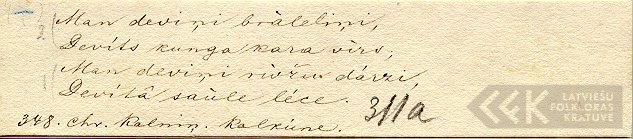 Man deviņi brāleliņi,
Devíts kunga kara vīrs;
Man deviņi rōžu dárzi,
Devítâ saule léce.
311a
348. Chr. Kalniņ. Kalkúne.
LATVIEŠU
FOLKLORAS
KRĀTUVE